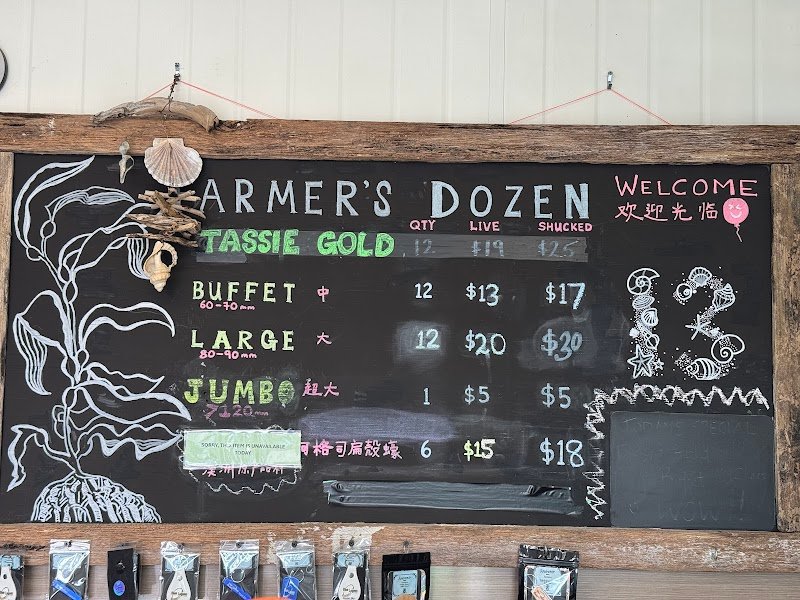 ARMER'S DOZEN
WELCOME
欢迎光临
QTY LIVE SHUCKED
TASSIE GOLD 12 $19 $25
BUFFET 中 12 $13 $17
60-70mm
LARGE 大 12 $20 $30
80-90mm
JUMBO 超大 1 $5 $5
>120mm
SORRY, THIS ITEM IS UNAVAILABLE TODAY
阿格司扁殼蠔 6 $15 $18
13